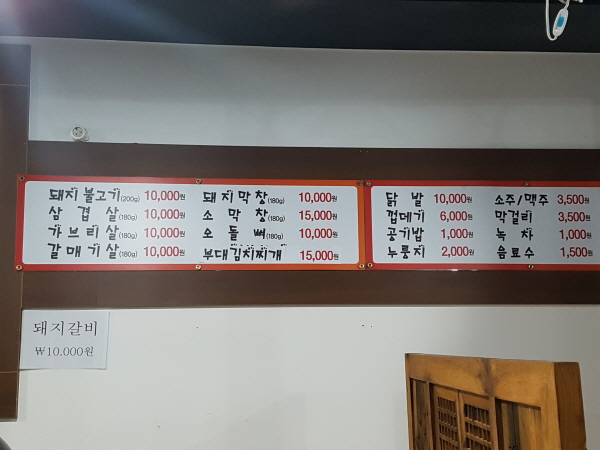 돼지불고기(200g) 10,000원
삼겹살(180g) 10,000원
가브리살(180g) 10,000원
갈매기살(180g) 10,000원
돼지막창(180g) 10,000원
소막창(180g) 15,000원
오돌뼈(180g) 10,000원
부대김치찌개 15,000원
닭발 10,000원
껍데기 6,000원
공기밥 1,000원
누룽지 2,000원
소주/맥주 3,500원
막걸리 3,500원
녹차 1,000원
음료수 1,500원
돼지갈비
₩10.000원